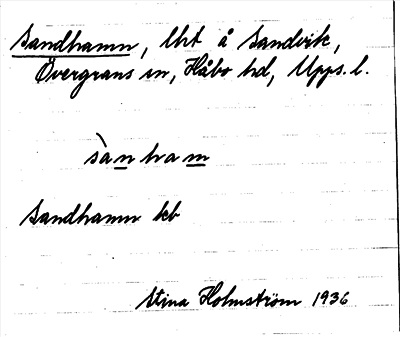 Sandhamn, lht å Sandvik,
Övergrans sn, Håbo hd, Upps. l.
sàn ham
Sandhamn kb
Stina Holmström 1936